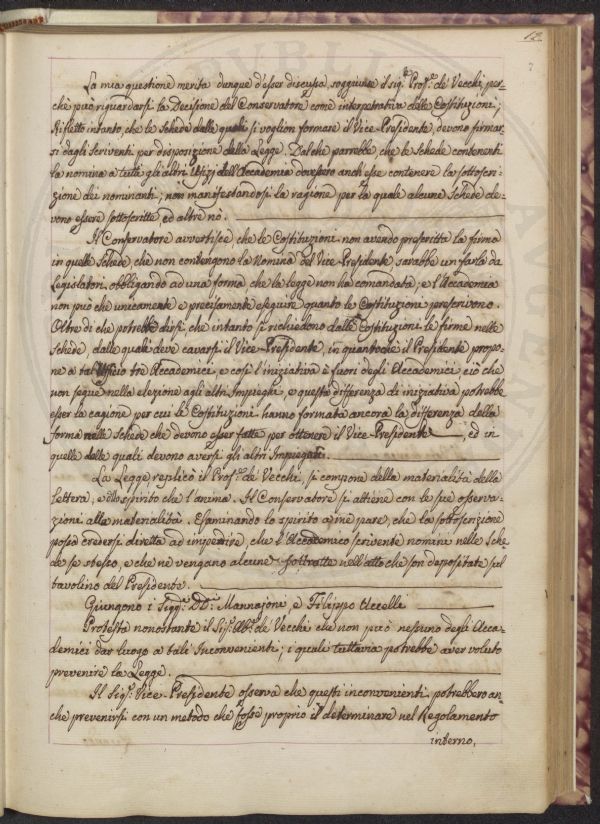 12.
7
La mia questione merita dunque d'esser discussa, soggiunse il sig.r Prof.re de' Vecchi, per=
chè può riguardarsi la Decisione del Conservatore come interpetrativa delle Costituzioni;
Rifletto intanto, che le Schede dalle quali si voglion formare il Vice-Presidente, devono firmar=
si dagli Scriventi per disposizione della Legge. Dal che parrebbe, che le Schede contenenti
la nomina a tutti gli altri Ufizj dell'Accademia dovessero anch'esse contenere la sottoscri=
zione dei nominanti; non manifestandosi la ragione per la quale alcune Schede de=
vono essere sottoscritte ed altre nò.
Il Conservatore avvertisce, che le Costituzioni non avendo prescritta la firma
in quelle Schede, che non contengono la Nomina del Vice-Presidente, sarebbe un farla da
Legislatori, obbligando ad una forma che la legge non ha comandata, e l'Accademia
non può che unicamente e precisamente eseguire quanto le Costituzioni prescrivono.
Oltre di che potrebbe dirsi, che intanto si richiedono dalle Costituzioni le firme nelle
Schede, dalle quali deve cavarsi il Vice-Presidente, in quantochè il Presidente propo=
ne a tal Uffizio tre Accademici, e così l'iniziativa è fuori degli Accademici, ciò che
non segue nella elezione agli altri Impieghi, e questa differenza di iniziativa potrebbe
esser la cagione per cui le Costituzioni hanno formata ancora la differenza della
forma nelle Schede che devono esser fatte per ottenere il Vice-Presidente, ed in
quelle dalle quali devono aversi gli altri Impiegati.
La Legge, replicò il Prof.re de' Vecchi, si compone della materialità della
lettera, e dello spirito che l'anima. Il Conservatore si attiene con le sue osserva=
zioni alla materialità. Esaminando lo spirito a me pare, che la sottoscrizione
possa credersi diretta ad impedire, che l'Accademico scrivente nomini nelle Sche=
de se stesso, e che ne vengano alcune sottratte nell'atto che son depositate sul
tavolino del Presidente.
Giungono i Sigg.ri DD.ri Mannajoni, e Filippo Uccelli
Protesta nonostante il Sig.r Ab.e de' Vecchi che non può nessuno degli Acca=
demici dar luogo a tali Inconvenienti; i quali tuttavia potrebbe aver voluto
prevenire la Legge.
Il Sig.r Vice-Presidente osserva che questi inconvenienti potrebbero an=
che prevenirsi con un metodo che fosse proprio il determinare nel Regolamento
interno,